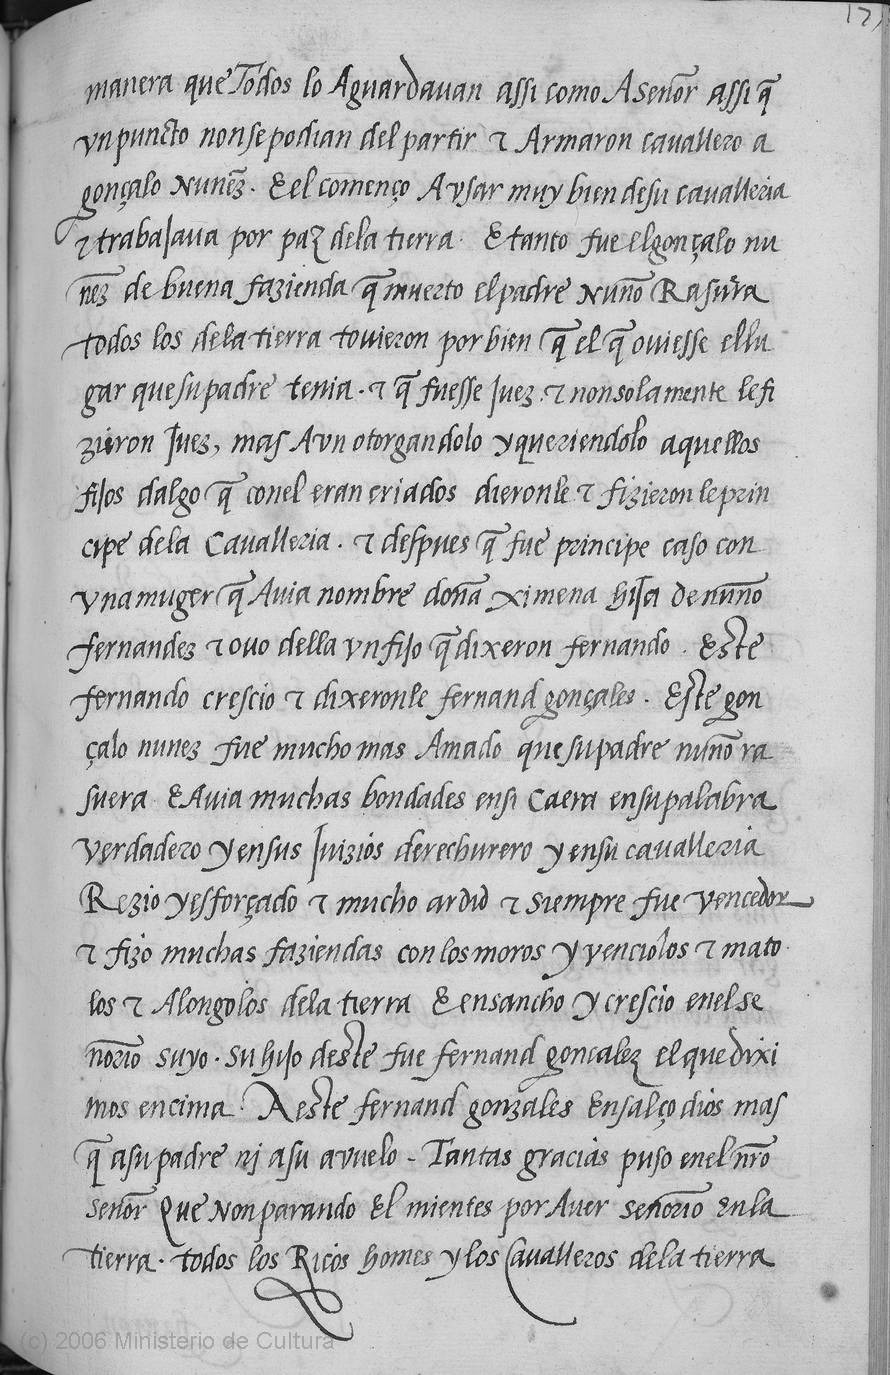 171
manera que Todos lo Aguardauan assi como A señor assi q̃
vn puncto non se podian del partir τ Armaron cauallero a
gonçalo nunẽz. E el començo A vsar muy bien de su caualleria
τ trabaJaua por paz dela tierra. E tanto fue el gonçalo nu
nẽz de buena fazienda q̃ muerto el padre nuño Rasura
todos los dela tierra touieron por bien q̃ el q̃ ouiesse el lu
gar que su padre tenia. τ q̃ fuesse Juez. τ non sola mente le fi
zieron Juez, mas Avn otorgandolo y queriendolo aquellos
fiJos dalgo q̃ con el eran criados dieronle τ fizieron le prin
cipe dela Caualleria. τ despues q̃ fue principe caso con
vna muger q̃ Auia nombre doña ximena hiJa de nuño
fernandez τ ouo della vn fiJo q̃ dixeron fernando. Este
fernando crescio τ dixeronle fernand gonçales. Este gon
çalo nunez fue mucho mas Amado que su padre nuño ra
suera E Auia muchas bondades en si Ca era en su palabra
verdadero y en sus Juizios derechurero y en su caualleria
Rezio y esforçado τ mucho ardid τ siempre fue vencedor
τ fizo muchas faziendas con los moros y venciolos τ mato
los τ Alongolos dela tierra E ensancho y crescio en el se
ñorio suyo. su hiJo deste fue fernand goncalez el que dixi
mos encima. A este fernand gonzales Ensalço dios mas
q̃ a su padre nj a su avuelo - Tantas gracias puso en el nr̃o
señor Que Non parando El mientes por Auer señorio En la
tierra. todos los Ricos homes y los Caualleros dela tierra
(c) 2006 Ministerio de Cultura